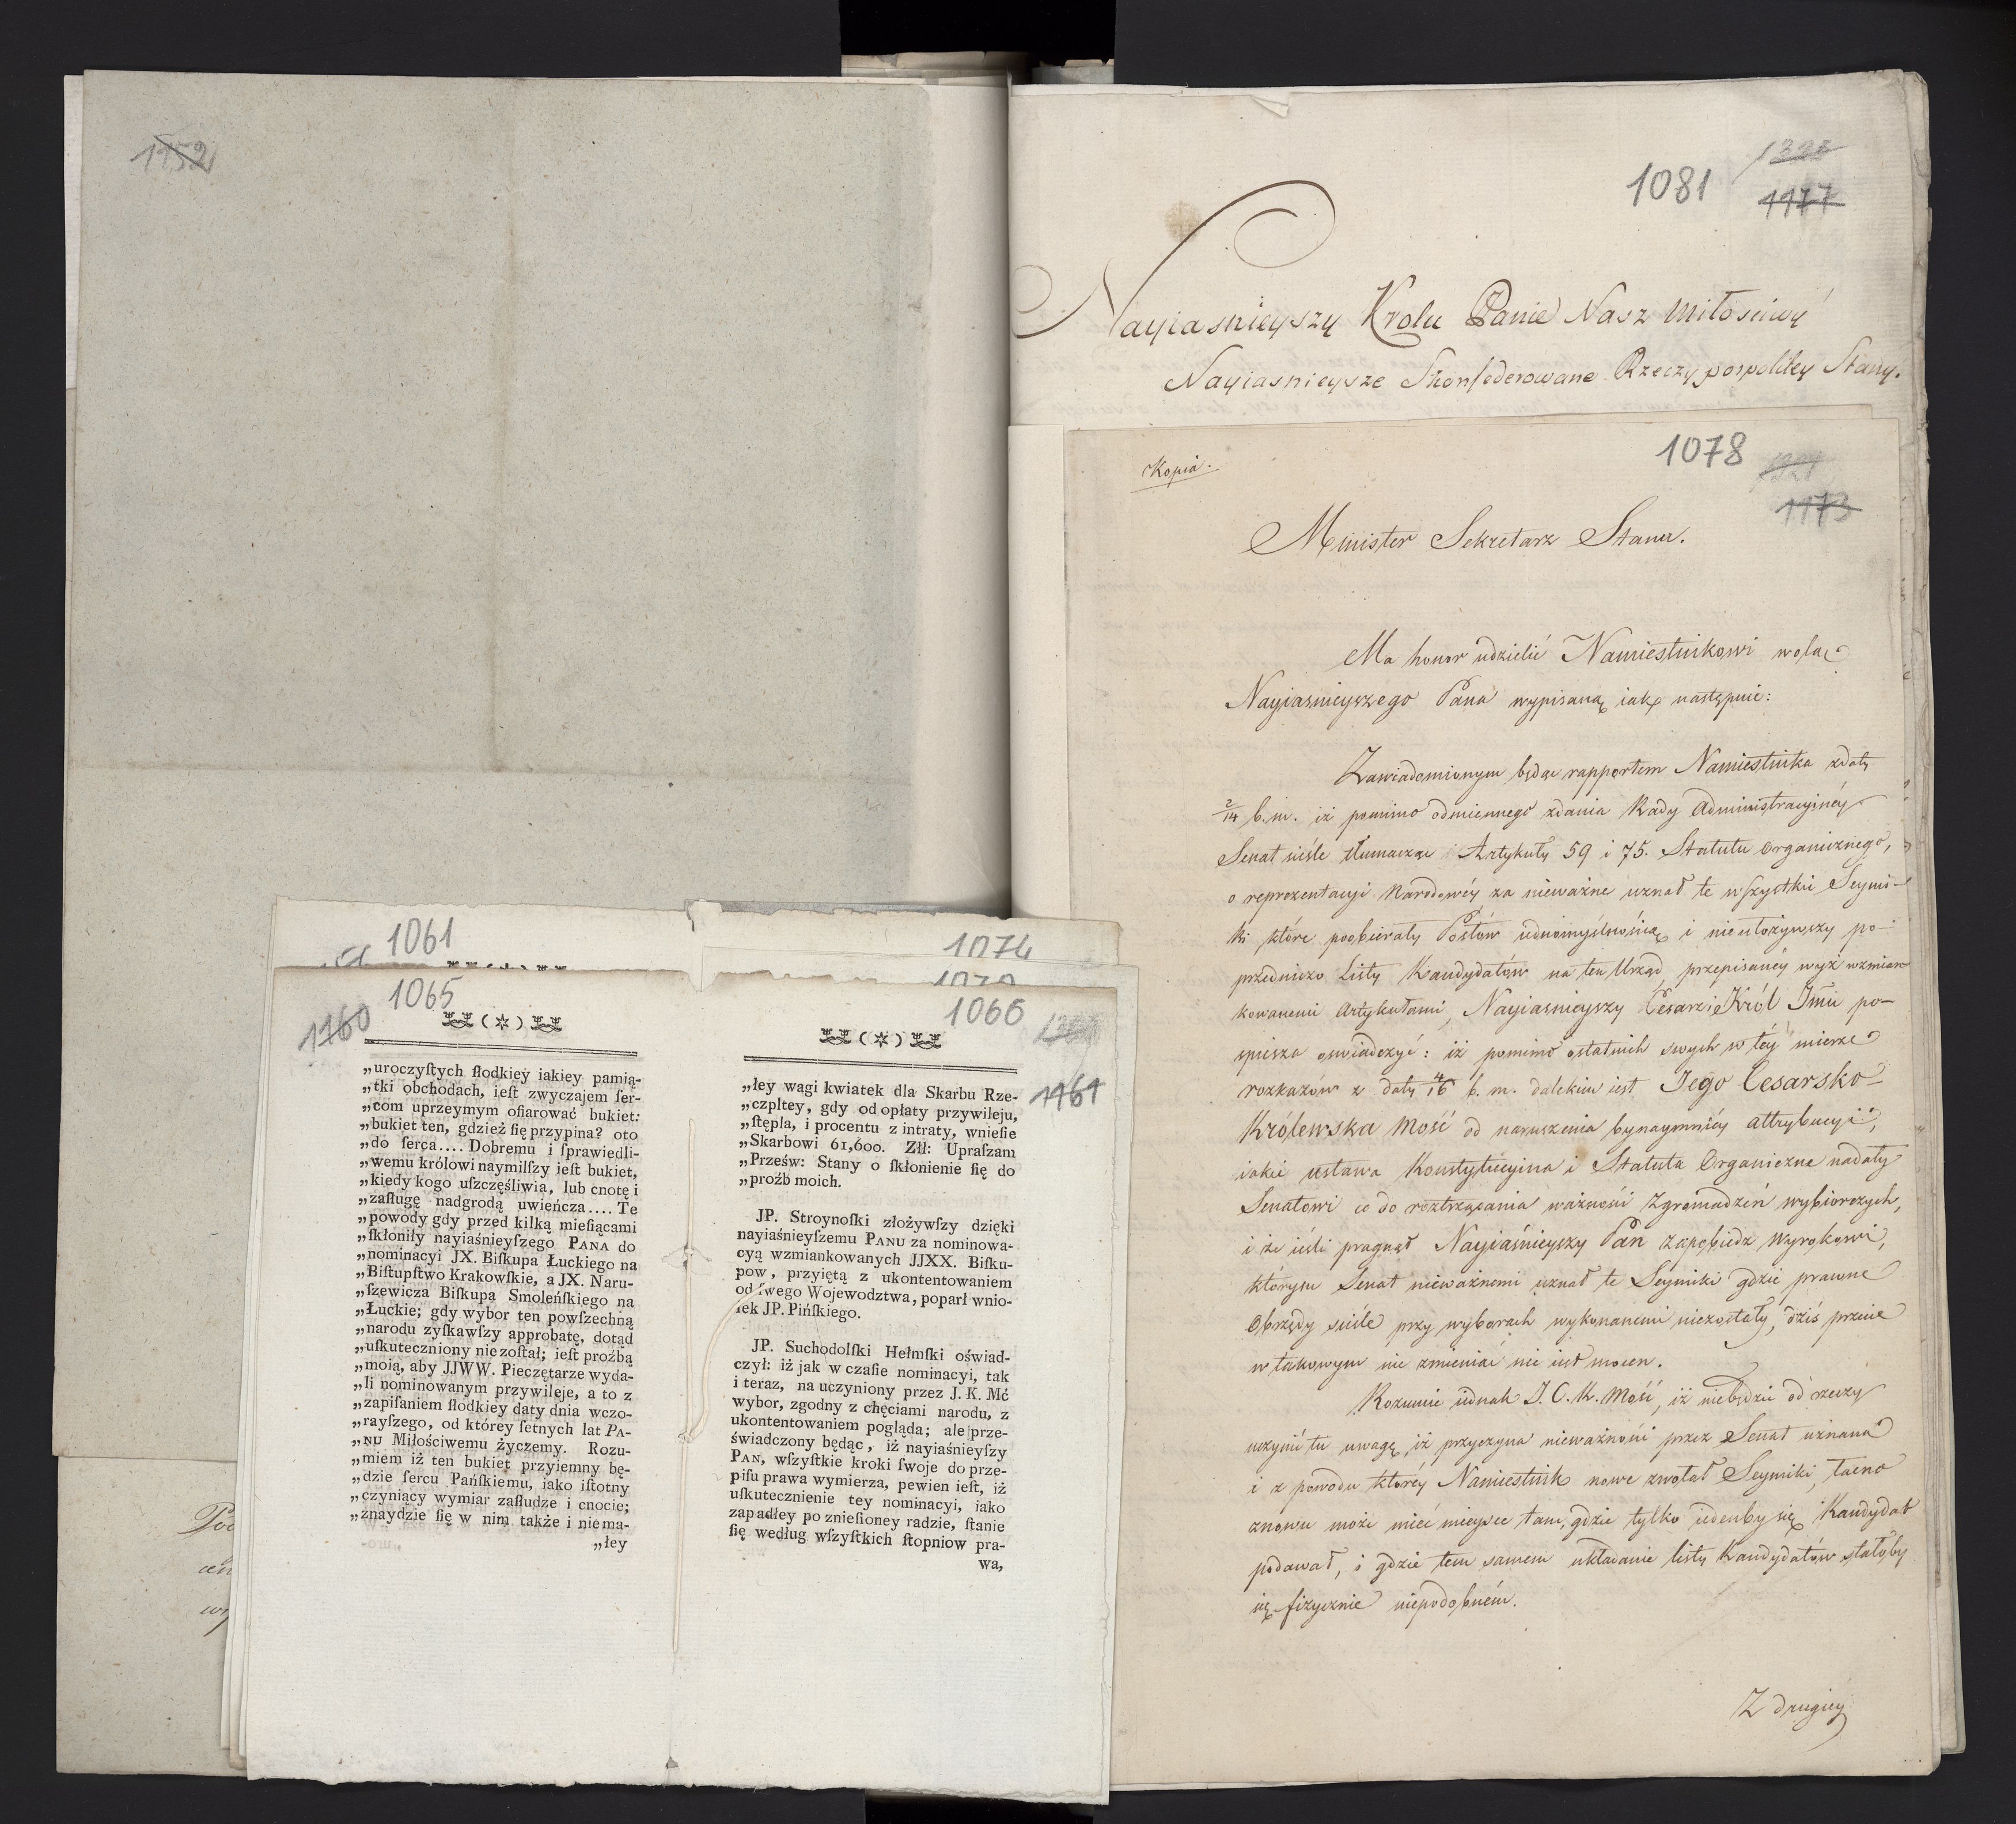 1152
1081
1177
Nayiasnieyszy Krolu Panie Nasz Miłosciwy
Nayiasnieysze Skonfederowane Rzeczypospolitey Stany.
Kopia.
1078
1173
Minister Sekretarz Stanu.
Ma honor udzielić Namiestnikowi wolą
Nayiasnieyszego Pana wypisaną iak następuie:
Zawiadomionym będąc rapportem Namiestnika z daty
2/14 b. m. iż pomimo odmiennego zdania Rady Administracyinéy
Senat ściśle tłumacząc Artykuły 59 i 75. Statutu Organicznego,
o reprezentacyi Narodowéy za nieważne uznał te wszystkie Seymi-
ki które poobierały Posłów iednomyślnością i nieułożywszy po-
przedniczo Listy Kandydatów na ten Urząd, przepisanéy wyż wzmian-
kowanemi Artykułami, Nayiasnieyszy Cesarz i Król Jmć po-
spiesza oswiadczyć: iż pomimo ostatnich swych w téy mierze
rozkazów z daty 4/16 b. m. dalekim iest Jego Cesarsko-
Królewska Mość od naruszenia bynaymniéy attrybucyi,
iakie ustawa Konstytucyina i Statuta Organiczne nadały
Senatowi co do roztrząsania ważności Zgromadzeń wybiorczych,
i że ieśli pragnął Nayiaśnieyszy Pan zapobiedz wyrokowi,
którym Senat nieważnemi uznał te Seymiki gdzie prawne
Obrzędy ściśle przy wyborach wykonanemi niezostały, dziś przecie
w takowym nic zmieniać nie iest mocen.
Rozumie iednak J. C. K. Mość, iż niebędzie od rzeczy
uczynić tu uwagę, iż przyczyna nieważności przez Senat uznana
i z powodu któréy Namiestnik nowe zwołał Seymiki, łacno
znowu może mieć mieysce tam, gdzie tylko ieden by się Kandydat
podawał, i gdzie tem samem układanie listy Kandydatów stałoby
się fizycznie niepodobném.
Z drugiey
1061
1074
1065
1160
(*)
„uroczyſtych ſłodkiey iakiey pamią-
„tki obchodach, ieſt zwyczajem ſer-
„com uprzeymym ofiarować bukiet:
„bukiet ten, gdzież ſię przypina? oto
„do ſerca.... Dobremu i ſprawiedli-
„wemu królowi naymilſzy ieſt bukiet,
„kiedy kogo uſzczęśliwia, lub cnotę i
„zaſługę nadgrodą uwieńcza.... Te
„powody gdy przed kilką mieſiącami
„ſkłoniły nayiaśnieyſzego PANA do
„nominacyi JX. Biſkupa Łuckiego na
„Biſtupſtwo Krakowſkie, a JX. Naru-
„ſzewicza Biſkupa Smoleńſkiego na
„Łuckie; gdy wybor ten powſzechną
„narodu zyſkawſzy approbatę, dotąd
„uſkuteczniony nie zoſtał; ieſt proźbą
„moią, aby JJWW. Pieczętarze wyda-
„li nominowanym przywileje, a to z
„zapiſaniem ſłodkiey daty dnia wczo-
„rayſzego, od którey ſetnych lat PA-
„NU Miłościwemu życzemy. Rozu-
„miem iż ten bukiet przyiemny bę-
„dzie ſercu Pańſkiemu, iako iſtotny
„czyniący wymiar zaſłudze i cnocie;
„znaydzie ſię w nim także i niema-
„łey
1066
1161
(*)
„łey wagi kwiatek dla Skarbu Rze-
„czpltey, gdy od opłaty przywileju,
„ſtępla, i procentu z intraty, wnieſie
„Skarbowi 61,600. Złł: Upraſzam
„Przeſw: Stany o ſkłonienie ſię do
„proźb moich.
JP. Stroynoſki złożywſzy dzięki
nayiaśnieyſzemu PANU za nominowa-
cyą wzmiankowanych JJXX. Biſku-
pow, przyiętą z ukontentowaniem
od ſwego Wojewodztwa, poparł wnio-
ſek JP. Pińſkiego.
JP. Suchodolſki Hełmſki oświad-
czył: iż jak w czaſie nominacyi, tak
i teraz, na uczyniony przez J. K. Mć
wybor, zgodny z chęciami narodu, z
ukontentowaniem pogląda; ale prze-
świadczony będąc, iż nayiaśnieyſzy
PAN, wſzyſtkie kroki ſwoje do prze-
piſu prawa wymierza, pewien ieſt, iż
uſkutecznienie tey nominacyi, iako
zapadłey po znieſioney radzie, ſtanie
ſię według wſzyſtkich ſtopniow pra-
wa,